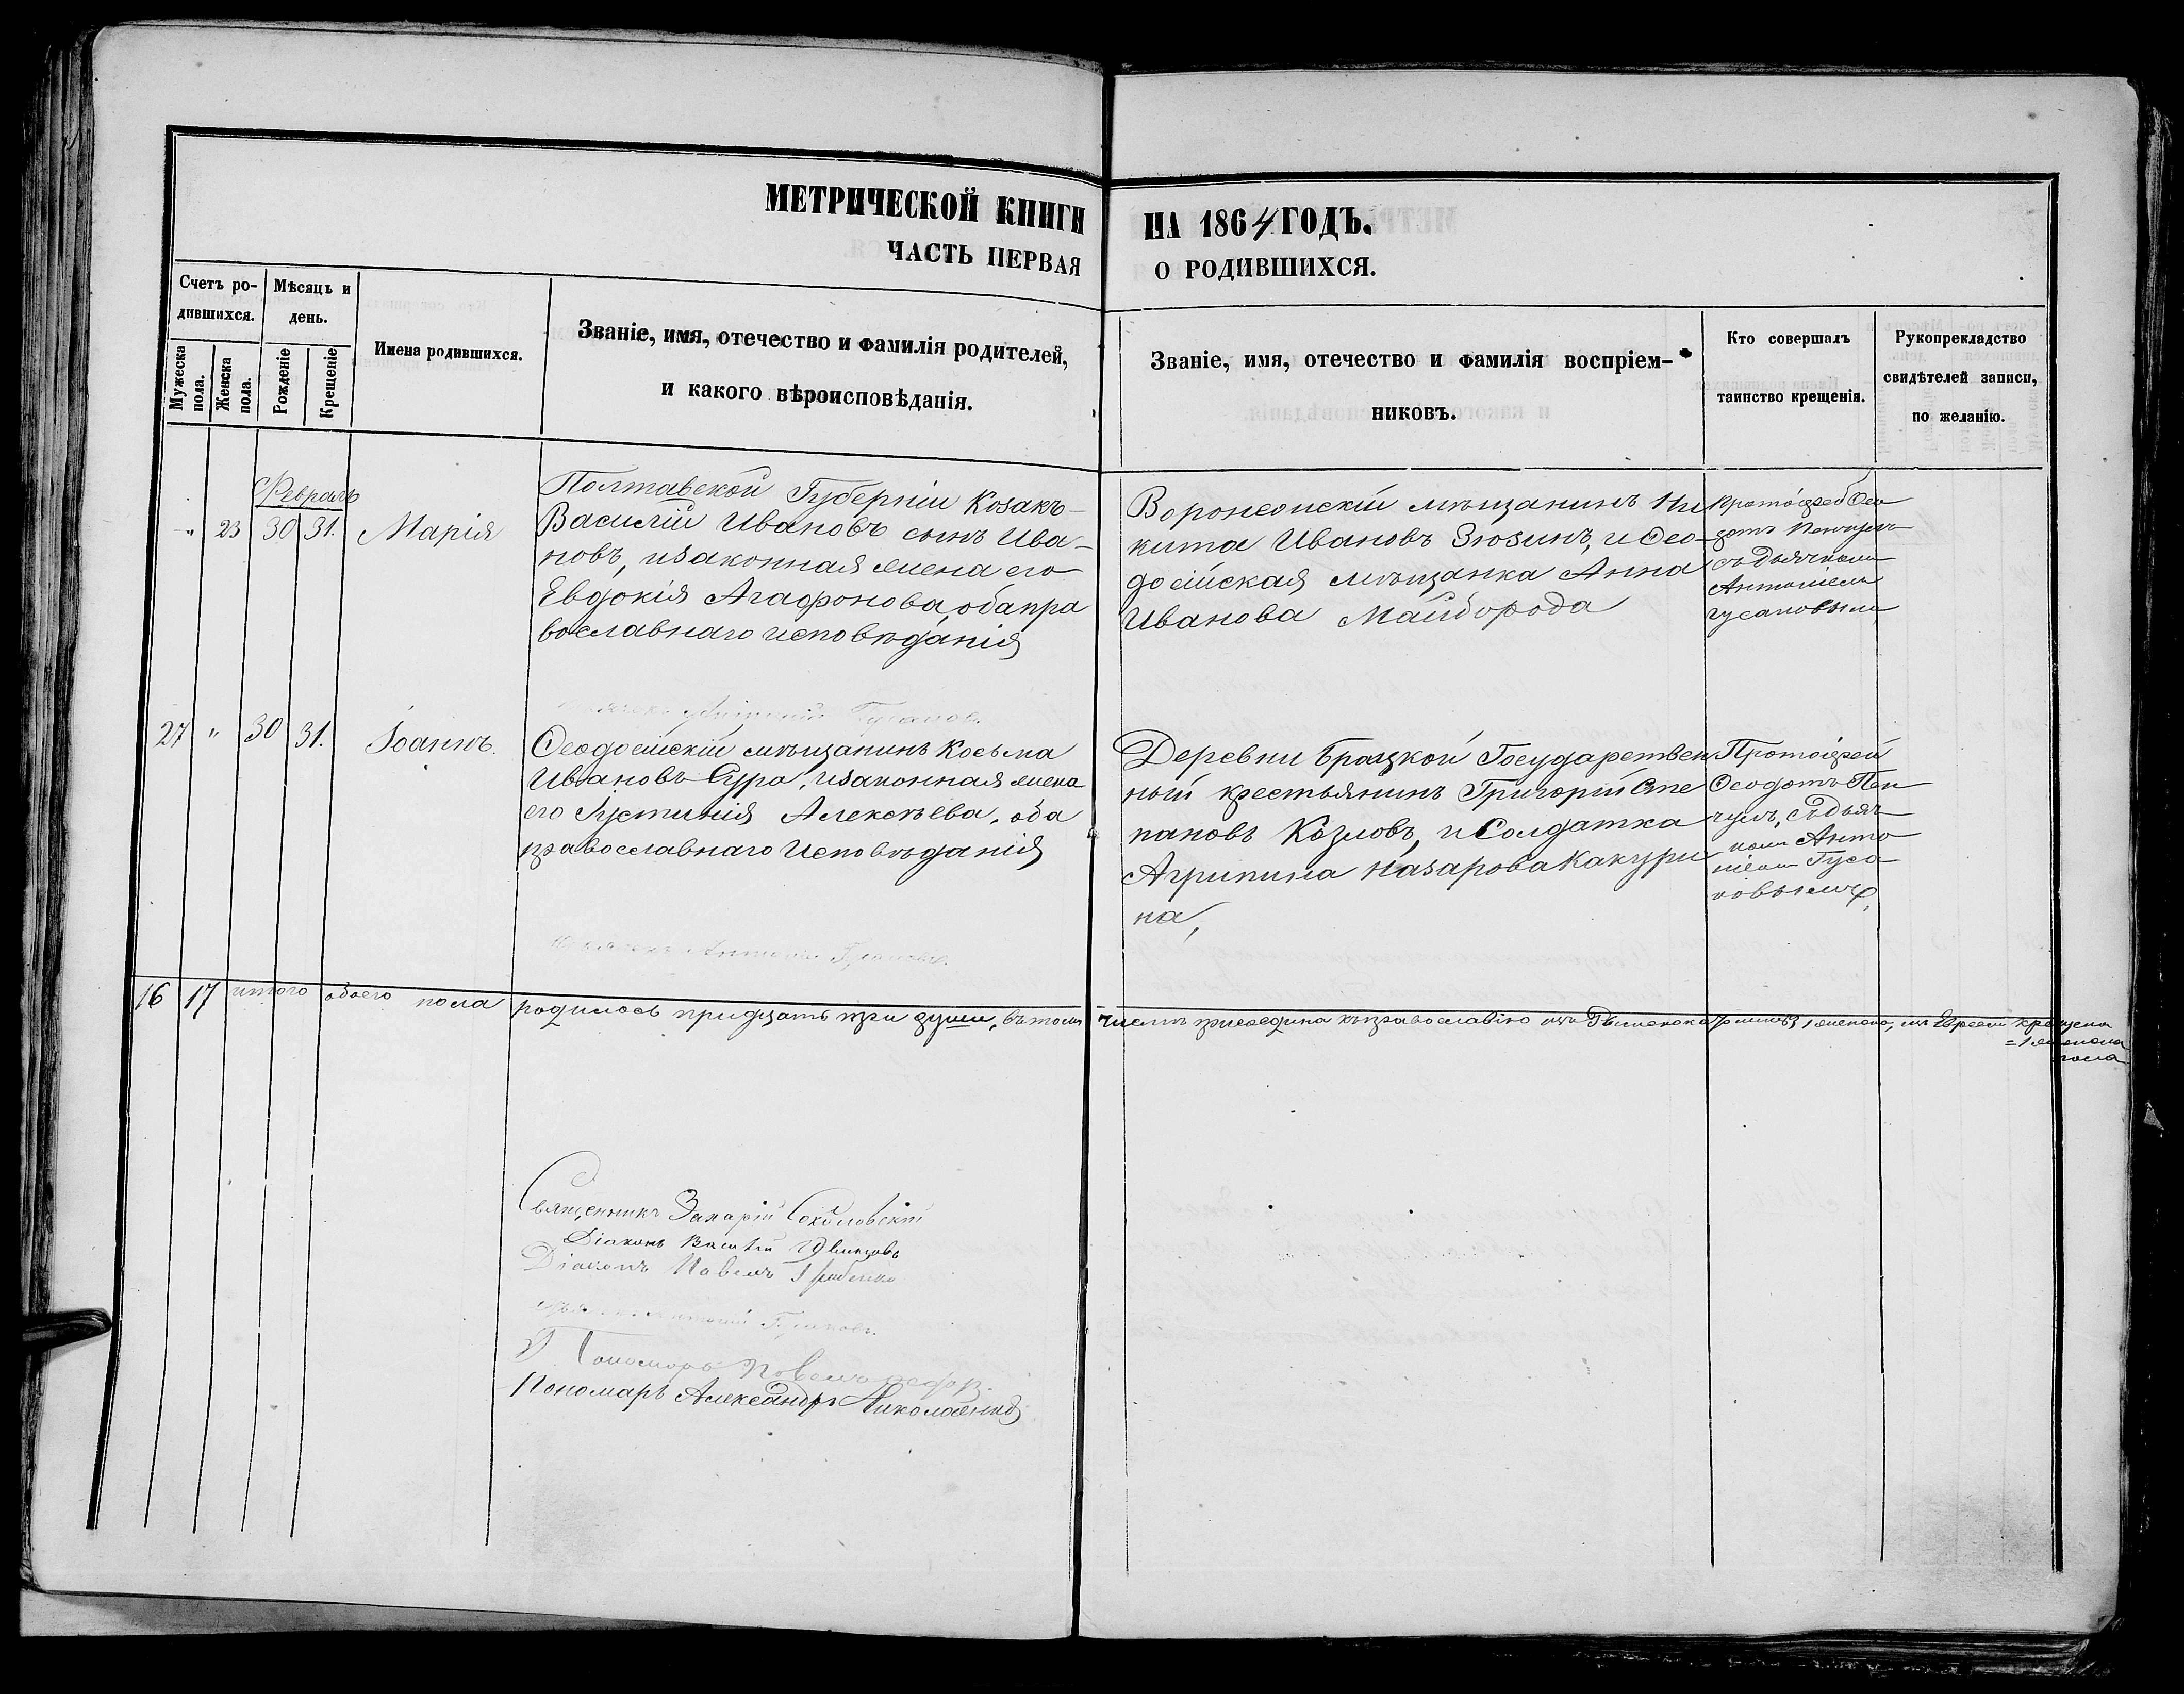 МЕТРИЧЕСКОЙ КНИГИ НА 1864 ГОДЪ.
ЧАСТЬ ПЕРВАЯ О РОДИВШИХСЯ.
Счетъ ро-
дившихся.
Мужеска пола.
Женска пола.
Мѣсяцъ и
день.
Рожденіе
Крещеніе
Имена родившихся.
Званіе, имя, отечество и фамилія родителей,
и какого вѣроисповѣданія.
Званіе, имя, отечество и фамилія воспріем-
никовъ.
Кто совершалъ
таинство крещенія.
Рукоприкладство
свидѣтелей записи,
по желанію.
Февраль
" 23 30 31. Марія
Полтавской Губерніи Козакъ
Василій Ивановъ сынъ Ива-
новъ, и законная жена его
Евдокія Агафонова, оба пра
вославнаго исповѣданія
мѣщанинъ Ни
кита Ивановъ Зюзинъ, и Ѳео-
досійская мѣщанка Анна
Иванова Майборода
Протоіерей Ѳео
дотъ
съ Дьячкомъ
Антоніемъ
Гусановымъ
27 " 30 31. Іоаннъ.
Ѳеодосійскій мѣщанинъ Косьма
Ивановъ Сура, и законная жена
его Іустинія Алексѣева, оба
православнаго Исповѣданія
Деревни Брацкой Государствен
ный крестьянинъ Григорій Сте
пановъ Козловъ, и Солдатка
Агрипина Назарова Какури
на,
Протоіерей
Ѳеодотъ
съ Дьяч
комъ Анто
ніемъ Гуса-
новымъ,
Антоній Гусановъ.
16 17 итого обоего пола родилось тридцать три души, въ томъ числѣ присоедина къ православію изъ 1 женска, изъ Евреевъ крещена
= 1 женска
пола
Священникъ Захарій Соколовскій
Діаконъ Василій
Діаконъ Павелъ
Антоній Гусановъ.
Пономарь Павелъ
Пономарь Александръ Николаенко